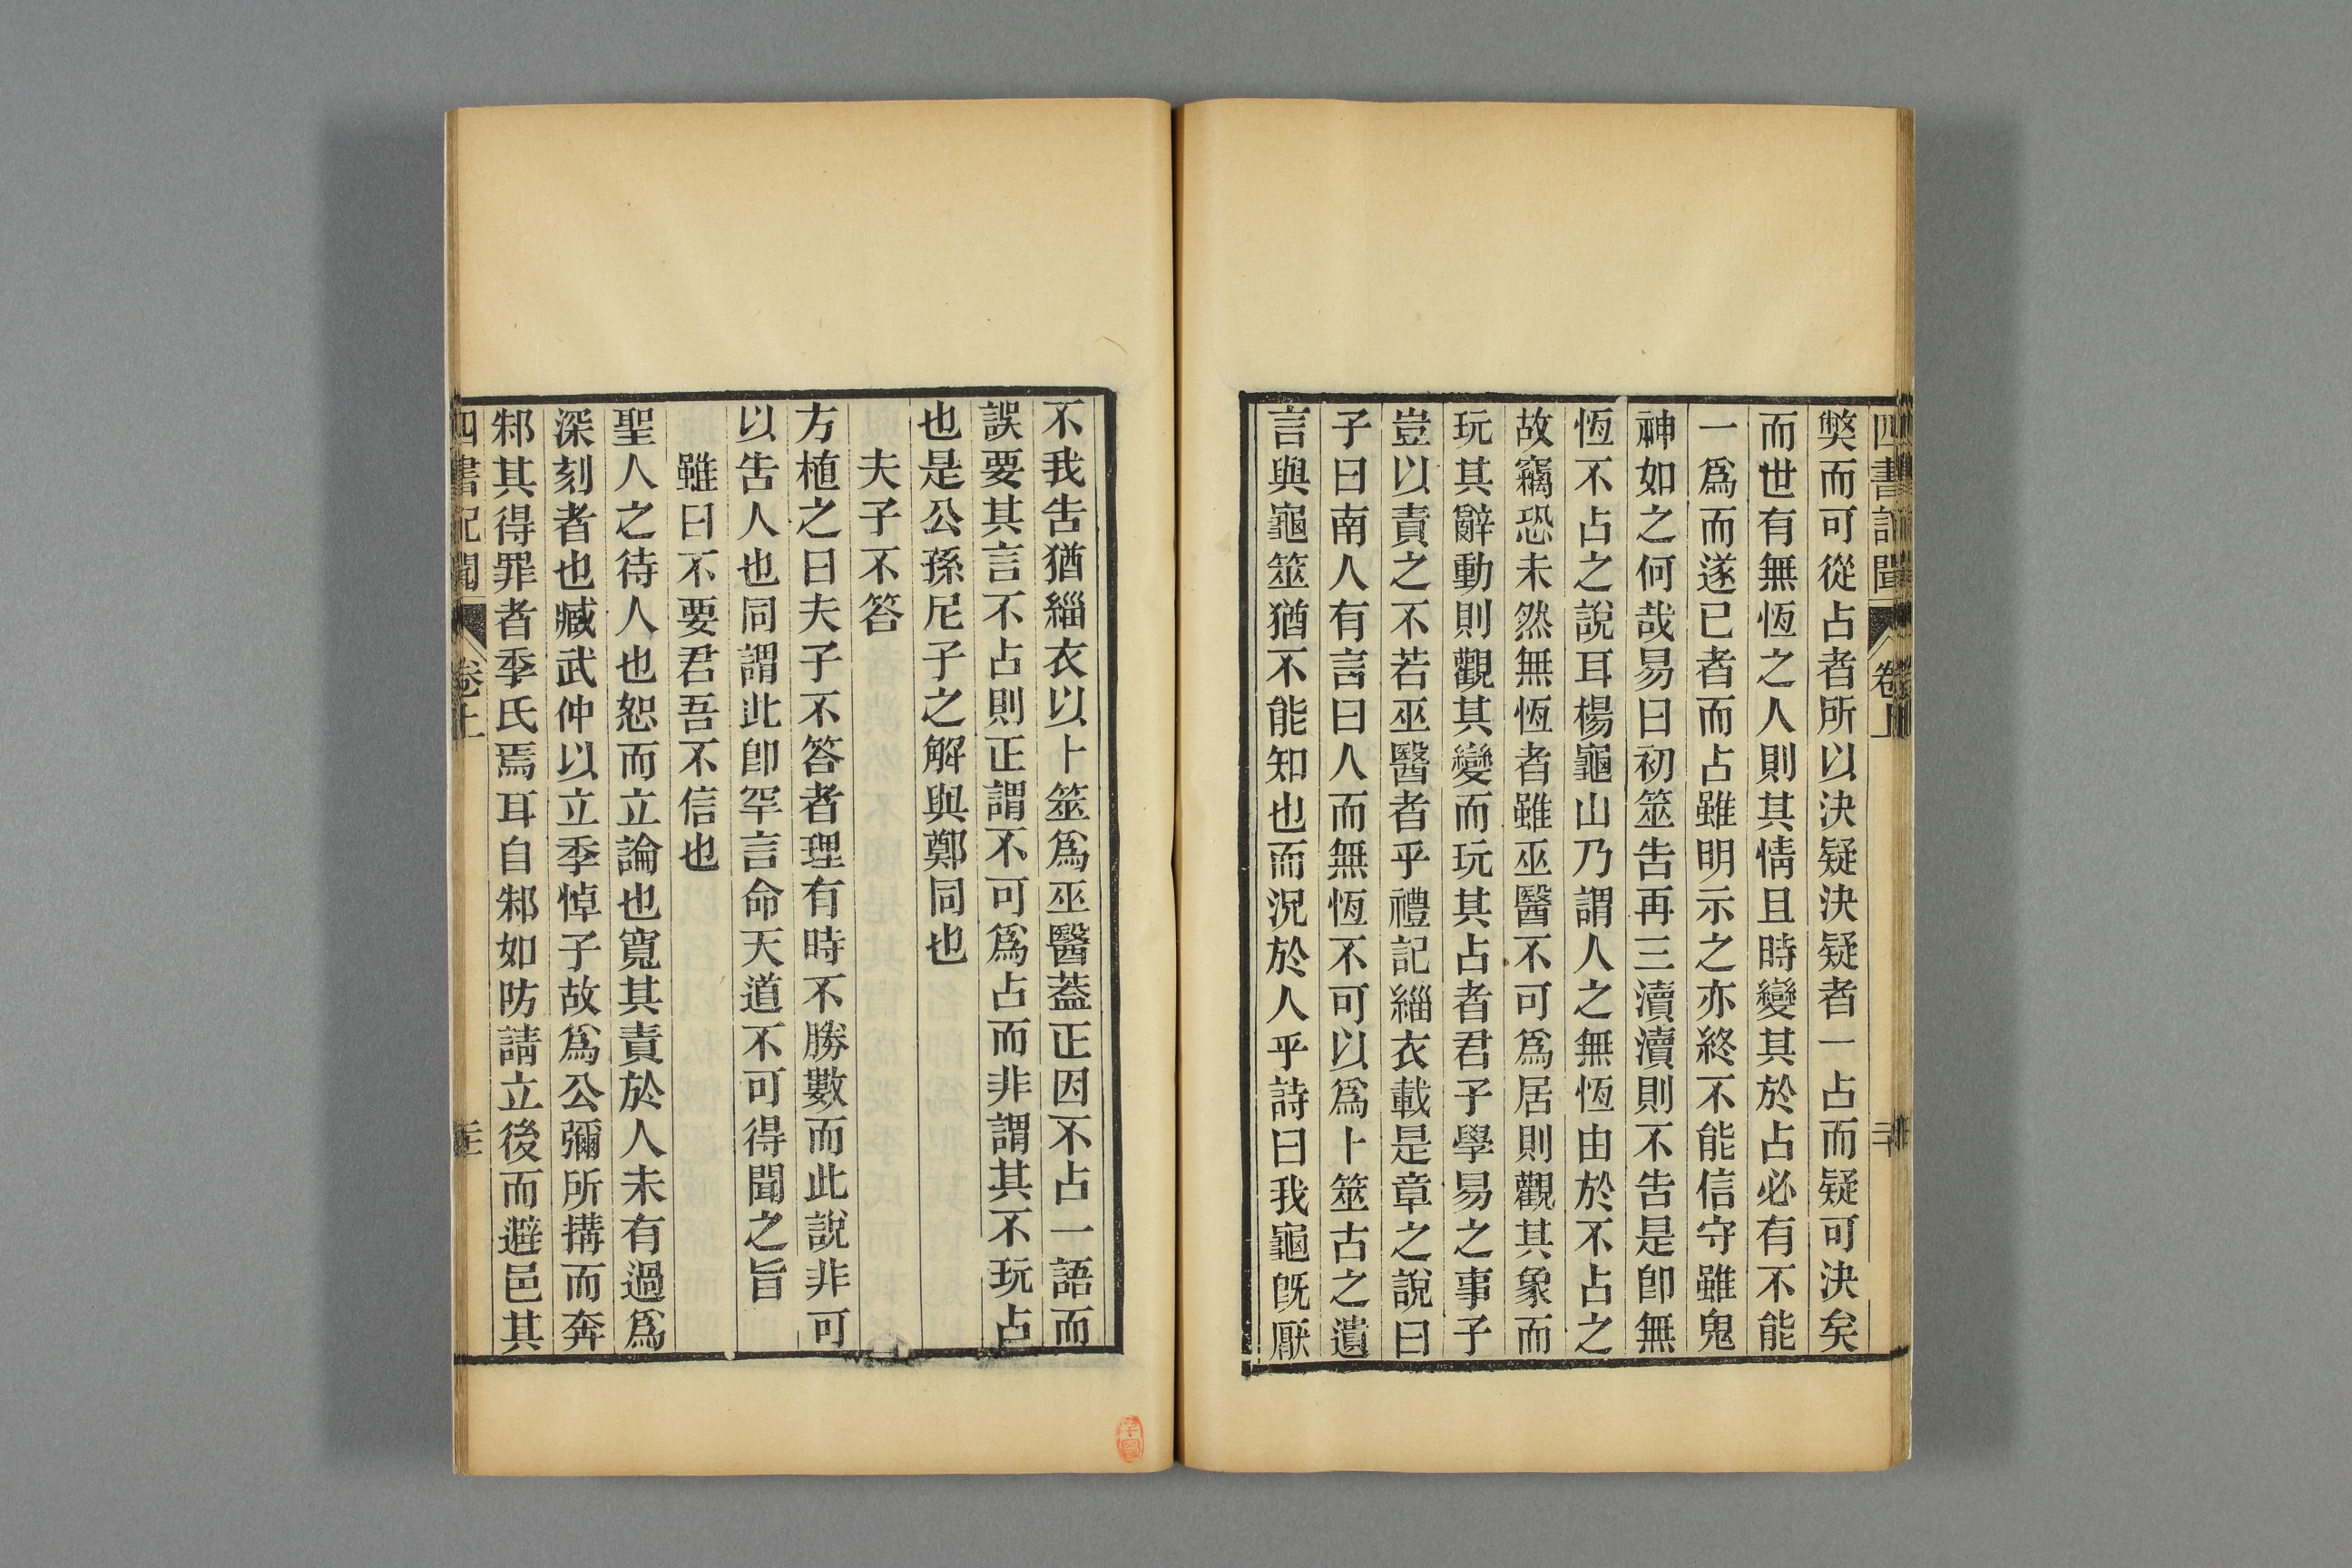 四書記聞 卷上 二十
獘而可從占者所以決疑決疑者一占而疑可決矣
而世有無恆之人則其情且時變其於占必有不能
一爲而遂已者而占雖明示之亦終不能信守雖鬼
神如之何哉易曰初筮告再三瀆瀆則不告是卽無
恆不占之說耳楊龜山乃謂人之無恆由於不占之
故竊恐未然無恆者雖巫醫不可爲居則觀其象而
玩其辭動則觀其變而玩其占者君子學易之事子
豈以責之不若巫醫者乎禮記緇衣載是章之說曰
子曰南人有言曰人而無恆不可以爲卜筮古之遺
言與龜筮猶不能知也而況於人乎詩曰我龜旣厭
不我告猶緇衣以卜筮爲巫醫蓋正因不占一語而
誤要其言不占則正謂不可爲占而非謂其不玩占
也是公孫尼子之解與鄭同也
夫子不答
方植之曰夫子不答者理有時不勝數而此說非可
以告人也同謂此卽罕言命天道不可得聞之旨
雖曰不要君吾不信也
聖人之待人也恕而立論也寬其責於人未有過爲
深刻者也臧武仲以立季悼子故爲公彌所搆而奔
邾其得罪者季氏焉耳自邾如防請立後而避邑其
四書記聞 卷上